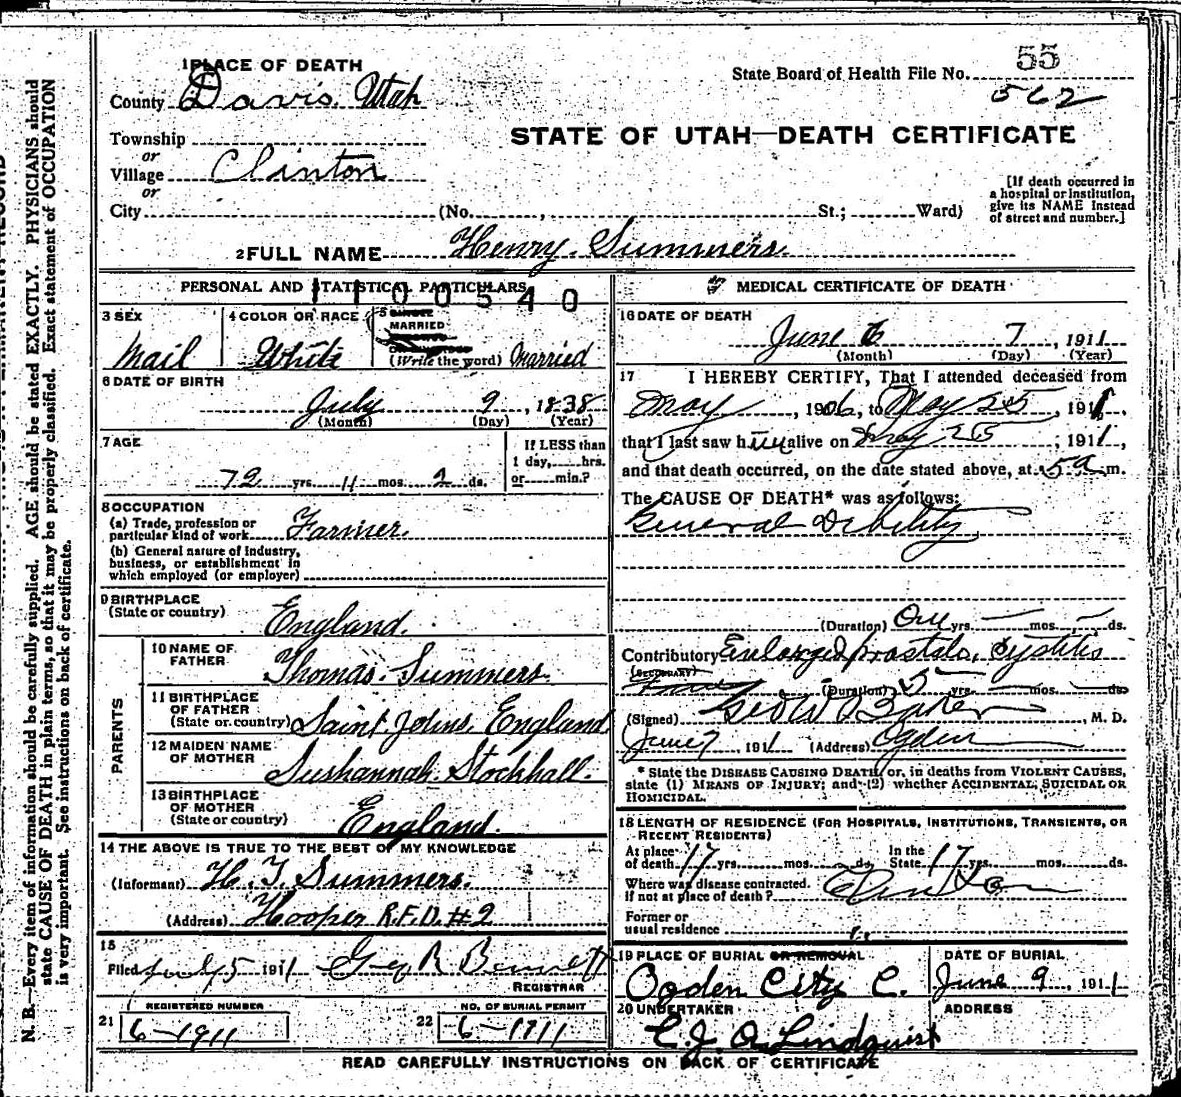 N. B.—Every item of information should be carefully supplied. AGE should be stated EXACTLY. PHYSICIANS should
state CAUSE OF DEATH in plain terms, so that it may be properly classified. Exact statement of OCCUPATION
is very important. See instructions on back of certificate.
1 PLACE OF DEATH
55
State Board of Health File No.
562
County Davis. Utah
STATE OF UTAH—DEATH CERTIFICATE
Township
or
Village Clinton
or
[If death occurred in
a hospital or institution,
give its NAME instead
of street and number.]
City (No. , St.; Ward)
2 FULL NAME Henry. Summers.
PERSONAL AND STATISTICAL PARTICULARS
1100540
3 SEX
Mail
4 COLOR OR RACE
White
5 SINGLE
MARRIED
(Write the word) Married
6 DATE OF BIRTH
July 9, 1838
(Month) (Day) (Year)
7 AGE
72 yrs. 11 mos. 2 ds.
If LESS than
1 day, hrs.
or min.?
8 OCCUPATION
(a) Trade, profession or
particular kind of work Farmer.
(b) General nature of industry,
business, or establishment in
which employed (or employer)
9 BIRTHPLACE
(State or country)
England.
PARENTS
10 NAME OF
FATHER
Thomas. Summers.
11 BIRTHPLACE
OF FATHER
(State or country) Saint Johns, England
12 MAIDEN NAME
OF MOTHER
Sushannah. Stockhall.
13 BIRTHPLACE
OF MOTHER
(State or country)
England.
14 THE ABOVE IS TRUE TO THE BEST OF MY KNOWLEDGE
(Informant) H. T. Summers.
(Address) Hooper R.F.D. #2
15
Filed July 5 1911 Geo R Bennett
REGISTRAR
REGISTERED NUMBER
21 6-1911
NO. OF BURIAL PERMIT
22 6-1911
MEDICAL CERTIFICATE OF DEATH
16 DATE OF DEATH
June 7, 1911
(Month) (Day) (Year)
17 I HEREBY CERTIFY, That I attended deceased from
May, 1906, to May 25, 1911,
that I last saw him alive on May 25, 1911,
and that death occurred, on the date stated above, at 5 a m.
The CAUSE OF DEATH* was as follows:
General Debility
(Duration) One yrs. — mos. — ds.
Contributory Enlarged prostate, Cystitis
(SECONDARY)
(Duration) 5 yrs. — mos. — ds.
(Signed) Geo W Baker, M. D.
June 7, 1911 (Address) Ogden
* State the DISEASE CAUSING DEATH, or, in deaths from VIOLENT CAUSES,
state (1) MEANS OF INJURY; and (2) whether ACCIDENTAL, SUICIDAL OR
HOMICIDAL.
18 LENGTH OF RESIDENCE (FOR HOSPITALS, INSTITUTIONS, TRANSIENTS, OR
RECENT RESIDENTS)
At place of death 17 yrs. mos. ds. In the State 17 yrs. mos. ds.
Where was disease contracted.
if not at place of death? Clinton
Former or
usual residence
19 PLACE OF BURIAL OR REMOVAL
Ogden City C.
DATE OF BURIAL
June 9, 1911
20 UNDERTAKER
C. J. A. Lindquist
ADDRESS
READ CAREFULLY INSTRUCTIONS ON BACK OF CERTIFICATE